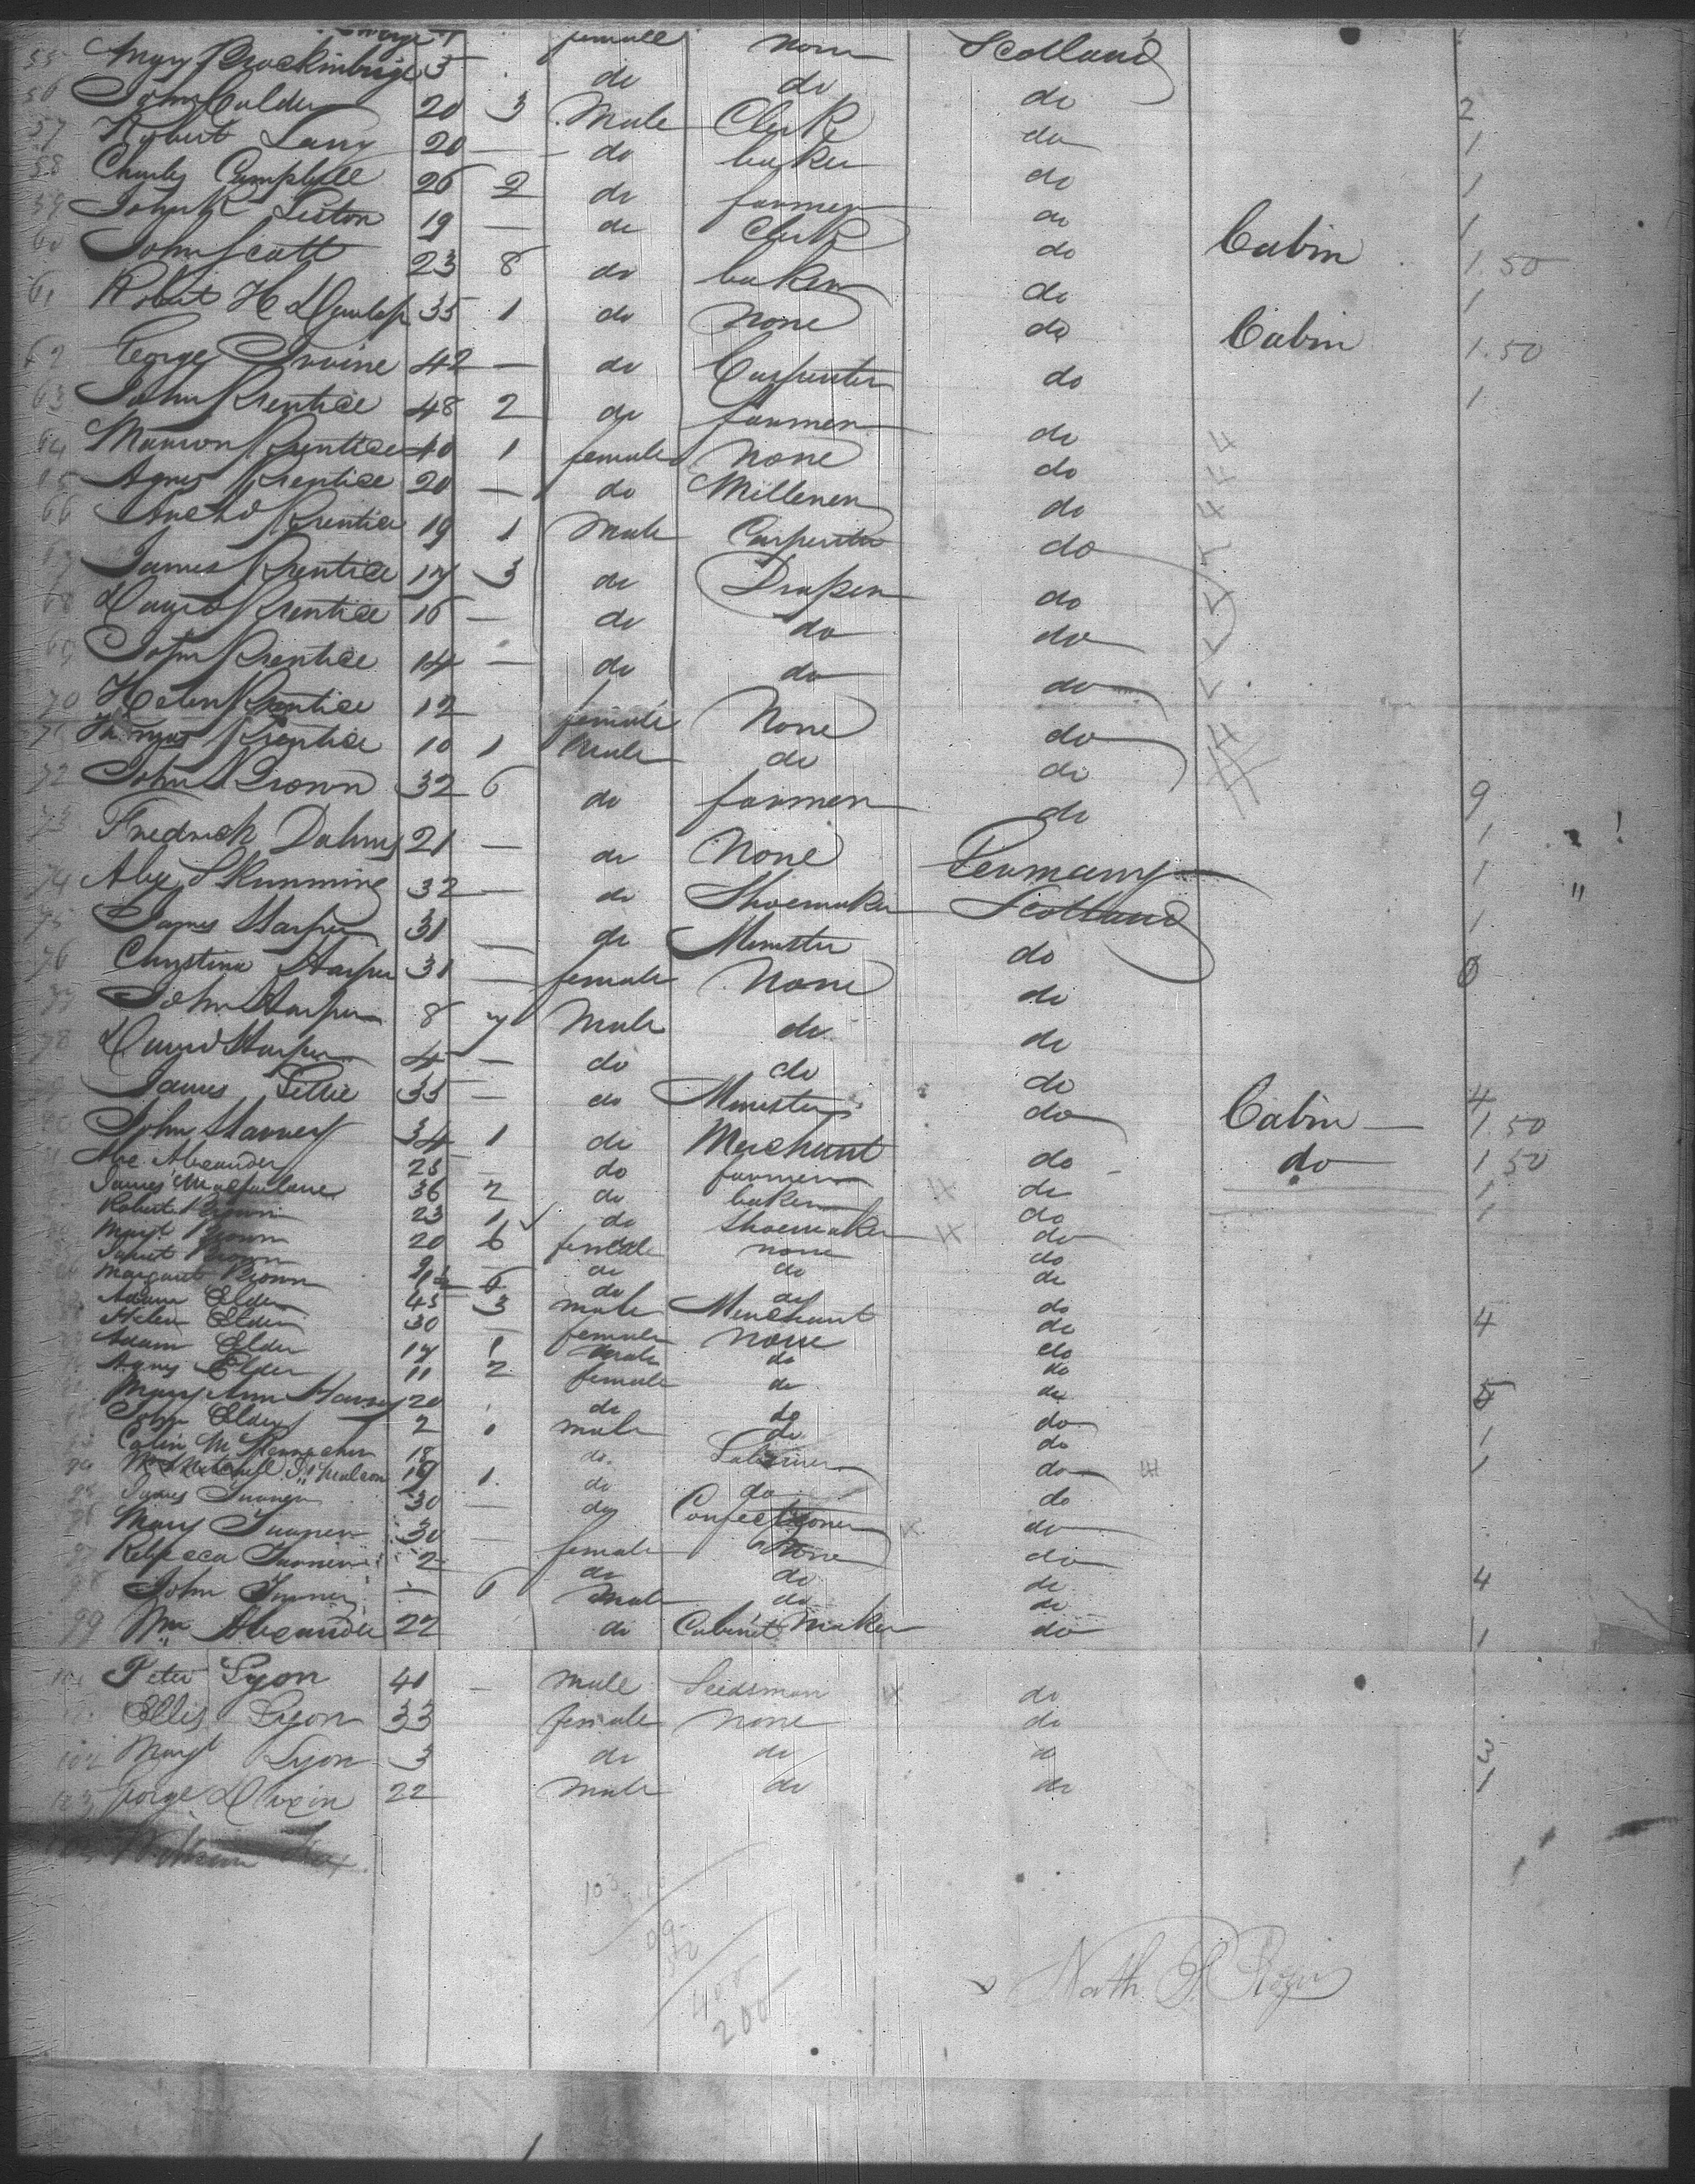 female none Scotland
55 Mary Brackinbrige 5 do do do 2
56 John Calder 20 3 Male Clerk do 1
57 Robert Lang 20 — do baker do 1
58 Charles Campbell 26 2 do farmer do 1
59 John K Liston 19 — do Clerk do Cabin 1.50
60 John Scott 23 8 do baker do 1
61 Robert H Dunlop 35 1 do None do Cabin 1.50
62 George Irvine 42 — do Carpenter do 1
63 John Prentice 48 2 do farmer do
64 Marion Prentice 40 1 female None do
65 Agnes Prentice 20 — do Millener do
66 Arch'd Prentice 19 1 Male Carpenter do
67 James Prentice 17 3 do Draper do
68 David Prentice 16 — do do do
69 John Prentice 14 — do do do
70 Helen Prentice 12 female None do
71 Thomas Prentice 10 1 Male do do 9
72 John Brown 32 6 do farmer do 1
73 Fredrick Dahms 21 — do None Germany 1
74 Alex Skimming 32 — do Shoemaker Scotland 1
75 James Harper 31 — do Minister do
76 Christina Harper 31 — female None do
77 John Harper 8 7 Male do do
78 David Harper 4 — do do do 4
79 James Lillie 35 — do Minister do Cabin — 1.50
80 John Harvey 34 1 do Merchant do do 1.50
81 Alex. Alexander 25 — do farmer do 1
James Macfarlane 36 2 do baker do 1
Robert Brown 23 1 do Shoemaker do
Margt Brown 20 6 female none do
Janet Brown 2 — do do do
Margaret Brown 6 do do do 4
Adam Elder 45 3 male Merchant do
Helen Elder 30 — female None do
Adam Elder 17 1 male do do
Agnes Elder 11 2 female do do
Mary Ann Harvey 20 do do do
John Elder 2 male do do
Colin 18 do. Labourer do 1
94 19 1 do do do
95 James Turner 30 — do Confectioner do
96 Mary Turner 30 — female None do
97 Rebecca Turner 2 do do do
98 John Turner — 6 Male do do 4
99 Wm Alexander 22 do Cabinet Maker do 1
Peter Lyon 40 — male Seedsman do
Ellis Lyon 33 female none do
102 Margt Lyon 3 do do do 3
103 George 22 Male do do 1
William
103
99
400
200
Nath. P. Rogers